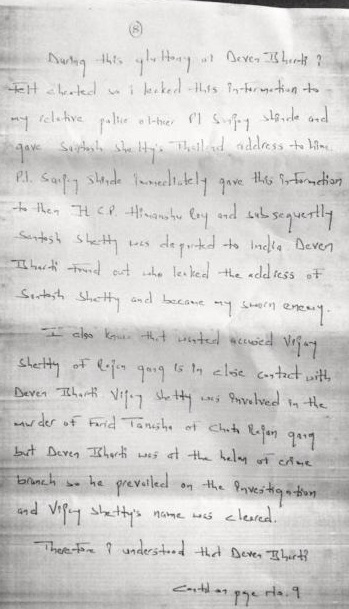 (8)
During this gluttony of Deven Bharti I
felt cheated so i leaked this information to
my relative police officer PI Sanjay Shinde and
gave Santosh Shetty's Thailand address to him.
P.I. Sanjay Shinde immediately gave this information
to then Jt C.P. Himanshu Roy and subsequently
Santosh Shetty was deported to India Deven
Bharti found out who leaked the address of
Santosh Shetty and became my sworn enemy.
I also know that wanted accused Vijay
Shetty of Rajan gang is in close contact with
Deven Bharti Vijay Shetty was involved in the
murder of Farid Tanasha of Chota Rajan gang
but Deven Bharti was at the helm of crime
branch so he prevailed on the investigation
and Vijay Shetty's name was cleared.
Therefore I understood that Deven Bharti
Contd on page no. 9